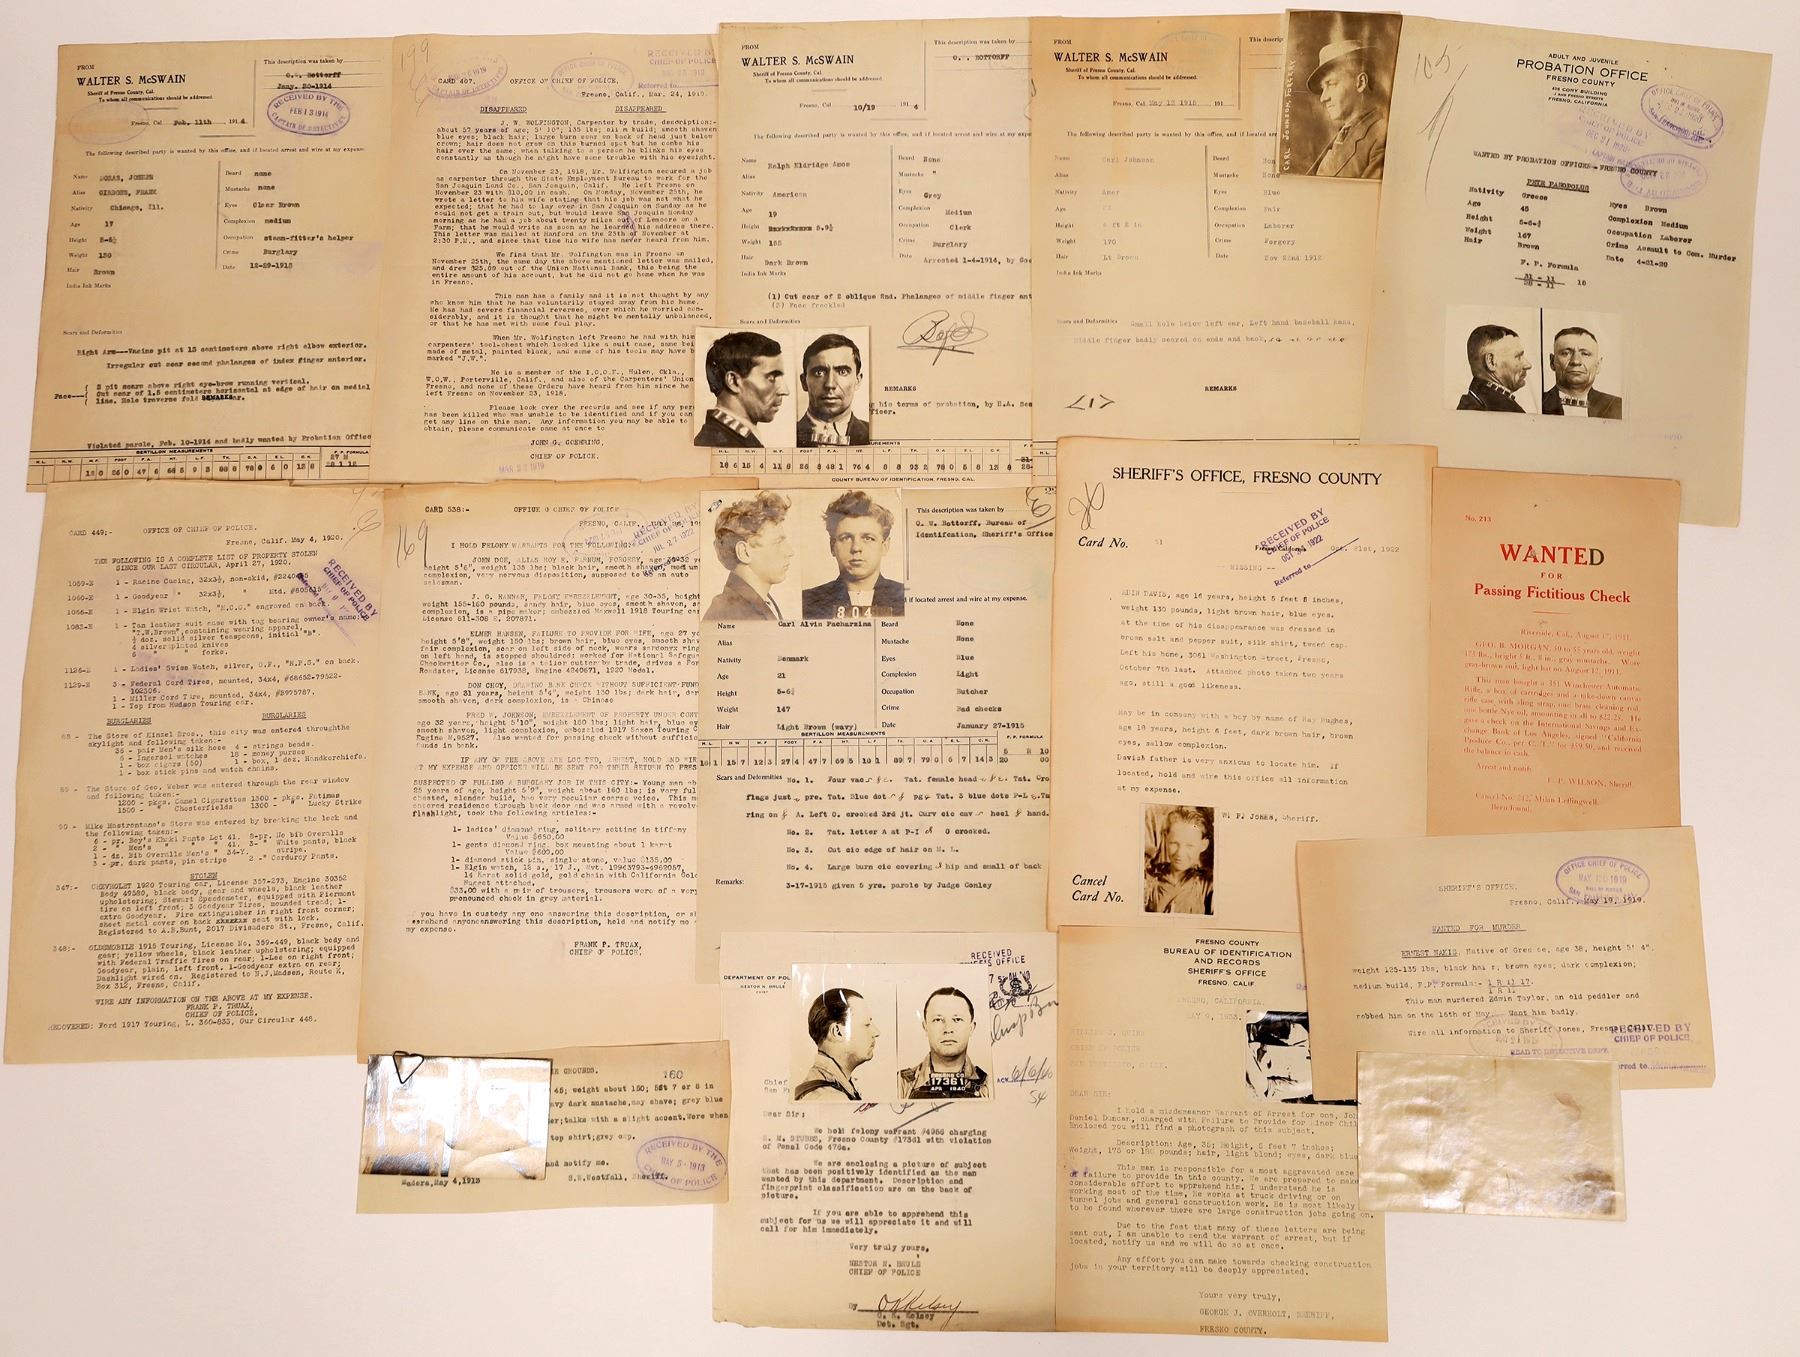 FROM
WALTER S. McSWAIN
Sheriff of Fresno County, Cal.
To whom all communications should be addressed.
This description was taken by
O. W. Bottorff
Jany. 20-1914
RECEIVED BY THE
FEB 13 1914
CAPTAIN OF DETECTIVES
Fresno, Cal Feb. 11th 191 4
The following described party is wanted by this office, and if located arrest and wire at my expense.
Name
Alias
Nativity Chicago, Ill.
Age 17
Weight 130
Hair Brown
India Ink Marks
Beard none
Mustache none
Eyes Clear Brown
Complexion medium
Occupation steam-fitter's helper
Crime Burglary
Date 12-29-1913
Scars and Deformities
Right Arm---Vacine pit at 13 centimeters above right elbow exterior.
Irregular cut scar second phalanges of index finger anterior.
Face---
2 pit scars above right eye-brow running vertical.
Cut scar of 1.5 centimeters horizontal at edge of hair on medial
Violated parole, Feb. 10-1914 and badly wanted by Probation Office
BERTILLON MEASUREMENTS
199
CARD 407.
OFFICE OF CHIEF OF POLICE,
Fresno, Calif., Mar. 24, 1919.
DISAPPEARED DISAPPEARED
J. W. WOLFINGTON, Carpenter by trade, description:-
about 57 years of age; 5' 10"; 135 lbs; slim build; smooth shaven
blue eyes; black hair; large burn scar on back of head just below
crown; hair does not grow on this burned spot but he combs his
hair over the same; when talking to a person he blinks his eyes
constantly as though he might have some trouble with his eyesight.
On November 23, 1918, Mr. Wolfington secured a job
as carpenter through the State Employment Bureau to work for the
San Joaquin Land Co., San Joaquin, Calif. He left Fresno on
November 23 with $10.00 in cash. On Monday, November 25th, he
wrote a letter to his wife stating that his job was not what he
expected; that he had to lay over in San Joaquin on Sunday as he
could not get a train out, but would leave San Joaquin Monday
morning as he had a job about twenty miles out of Lemoore on a
Farm; that he would write as soon as he learned his address there.
This letter was mailed at Hanford on the 25th of November at
2:30 P.M., and since that time his wife has never heard from him.
We find that Mr. Wolfington was in Fresno on
November 25th, the same day the above mentioned letter was mailed,
and drew $25.00 out of the Union National Bank, this being the
entire amount of his account, but he did not go home when he was
in Fresno.
This man has a family and it is not thought by any
who know him that he has voluntarily stayed away from his home.
He has had severe financial reverses, over which he worried con-
siderably, and it is thought that he might be mentally unbalanced,
or that he has met with some foul play.
When Mr. Wolfington left Fresno he had with him
carpenters' tool-chest which looked like a suit case, same being
made of metal, painted black, and some of his tools may have b
marked "J.W.".
He is a member of the I.O.O.F., Hulen, Okla.,
W.O.W., Porterville, Calif., and also of the Carpenters' Union
Fresno, and none of these Orders have heard from him since he
left Fresno on November 23, 1918.
Please look over the records and see if any per
has been killed who was unable to be identified and if you can
get any line on this man. Any information you may be able to
obtain, please communicate same at once to
JOHN G. GOEHRING,
CHIEF OF POLICE.
FROM
WALTER S. McSWAIN
Sheriff of Fresno County, Cal.
To whom all communications should be addressed.
This description was taken by
O. W. BOTTORFF
Fresno, Cal 10/19 191 4
The following described party is wanted by this office, and if located arrest and wire at my exp
Name Ralph Eldridge Amos
Alias
Nativity American
Age 19
Weight 155
Hair Dark Brown
India Ink Marks
Beard None
Mustache "
Eyes Grey
Complexion Medium
Occupation Clerk
Crime Burglary
Date Arrested 1-4-1914, by
(1) Cut scar of 2 oblique 2nd. Phalanges of middle finger ant
(2) Face freckled
Scars and Deformities
REMARKS
COUNTY BUREAU OF IDENTIFICATION, FRESNO, CAL.
FROM
WALTER S. McSWAIN
Sheriff of Fresno County, Cal.
To whom all communications should be addressed.
Fresno, Cal May 13 1915 191
The following described party is wanted by this office, and if located arrest
Name Carl Johnson
Alias
Nativity Amer
Age
Height
Weight 170
Hair Lt Brown
India Ink Marks
Beard None
Mustache
Eyes Blue
Complexion Fair
Occupation Laborer
Crime Forgery
Date Nov 22nd 1912
Scars and Deformities Small hole below left ear, Left hand baseball hand,
Middle finger badly scared on ends and back,
REMARKS
CARL JOHNSON FORGERY
105
ADULT AND JUVENILE
PROBATION OFFICE
FRESNO COUNTY
CORY BUILDING
FRESNO, CALIFORNIA
WANTED BY PROBATION OFFICE- FRESNO COUNTY
PETE PANOPOLUS
Nativity Greece
Age 45
Height
Weight 167
Hair Brown
Eyes Brown
Complexion Medium
Occupation Laborer
Crime Assault to Com. Murder
Date 4-21-20
F. P. Formula
CARD 449;- OFFICE OF CHIEF OF POLICE.
Fresno, Calif. May 4, 1920.
THE FOLLOWING IS A COMPLETE LIST OF PROPERTY STOLEN
SINCE OUR LAST CIRCULAR, April 27, 1920.
RECEIVED BY
CHIEF OF POLICE
1059-E 1 - Racine Casing, 32x3½, non-skid,
1060-E 1 - Goodyear " 32x3½, " Mtd.
1066-E 1 - Elgin Wrist Watch, "M.C.C." engraved on back.
1083-E 1 - Tan leather suit case with tag bearing owner's name:
"T.W.Brown",containing wearing apparel,
½ doz. solid silver teaspoons, initial "B".
4 silver plated knives
6 " " forks.
1126-E 1 - Ladies' Swiss Watch, silver, O.F., "H.P.S." on back.
1129-E 3 - Federal Cord Tires, mounted, 34x4, #68652-79522-
102306.
1 - Miller Cord Tire, mounted, 34x4, #B975787.
1 - Top from Hudson Touring car.
BURGLARIES BURGLARIES
88 - The Store of Kinzel Bros., this city was entered throughthe
skylight and following taken:-
36 - pair Men's silk hose 4 - strings beads.
6 - Ingersol watches 18 - money purses
1 - box cigars (50) 1 - box, 1 doz. Handkerchiefs.
1 - box stick pins and watch chains.
89 - The Store of Geo. Weber was entered through the rear window
and following taken:-
1200 - pkgs. Camel Cigarettes 1300 - pkgs. Fatimas
1500 - " Chesterfields 1300 - " Lucky Strike
90 - Mike Mastrontano's Store was entered by breaking the lock and
the following taken:-
STOLEN
347:- CHEVROLET 1920 Touring car, License 357-273, Engine 30352
Body 49580, black body, gear and wheels, black leather
upholstering; Stewart Speedometer, equipped with Piermont
tire on left front; 3 Goodyear Tires, mounted tread; 1-
extra Goodyear. Fire extinguisher in right front corner;
sheet metal cover on back xxxxxxx seat with lock.
Registered to A.B.Bunt, 2017 Divisadero St., Fresno, Calif.
348:- OLDSMOBILE 1915 Touring, License No. 359-449, black body and
gear; yellow wheels, black leather upholstering; equipped
with Federal Traffic Tires on rear; 1-Lee on right front;
Goodyear, plain, left front, 1-Goodyear extra on rear;
Dashlight wired on. Registered to N.J.Madsen, Route K,
Box 312, Fresno, Calif.
WIRE ANY INFORMATION ON THE ABOVE AT MY EXPENSE.
FRANK P. TRUAX,
CHIEF OF POLICE.
RECOVERED: Ford 1917 Touring, L. 360-833, Our Circular 448.
169
CARD 538:- OFFICE O CHIEF OF POLICE
I HOLD FELONY WARRANTS FOR THE FOLLOWING:-
JOHN DOE, ALIAS ROY E. FARNUM, FORGERY, age
height 5'6", weight 135 lbs; black hair, smooth shaven, medium
complexion, very nervous disposition, supposed to be an auto
salesman.
J. C. HANNAH, FELONY EMBEZZLEMENT, age 30-35, height
weight 155-160 pounds, sandy hair, blue eyes, smooth shaven,
complexion, is a pipe maker; embezzled Maxwell 1918 Touring car
License 611-308 E, 207871.
ELMER HANSEN, FAILURE TO PROVIDE FOR WIFE, age 27 ye
height 5'8", weight 150 lbs; brown hair, blue eyes, smooth shav
fair complexion, scar on left side of neck, wears sardonyx ring
on left hand, is stopped shouldred; worked for National Safegua
Checkwriter Co., also is a tailor cutter by trade, drives a For
Roadster, License 617938, Engine 4240671, 1920 Model.
BANK, age 31 years, height 5'4", weight 130 lbs; dark hair, dar
complexion, is a Chinese
FRED W. JOHNSON; EMBEZZLEMENT OF PROPERTY UNDER CONT
age 32 years, height 5'10", weight 160 lbs; light hair, blue ey
smooth shaven, light complexion, embezzled 1917 Saxon Touring C
Engine M.9527. Also wanted for passing check without sufficie
funds in bank.
IF ANY OF THE ABOVE ARE LOCATED, ARREST, HOLD AND WIR
AT MY EXPENSE AND OFFICER WILL BE SENT FOR THEIR RETURN TO FRES
SUSPECTED OF PULLING A BURGLARY JOB IN THIS CITY:- Young man ab
25 years of age, height 5'9", weight about 160 lbs; is very ful
chested, slender build, has very peculiar coarse voice. This m
entered residence through back door and was armed with a revolve
flashlight, took the following articles:-
1- ladies' diamond ring, solitary setting in tiffany
Value $650.00
1- gents diamond ring, box mounting about 1 karat
Value $600.00
1- diamond stick pin, single stone, value $135.00
14 Karat solid gold, gold chain with California Gold
Nugget attached.
$33.00 with a pair of trousers, trousers were of a very
pronounced check in grey material.
you have in custody any one answering this description, or sh
anyoneanswering this description, hold and notify me
my expense.
FRANK P. TRUAX,
CHIEF OF POLICE.
This description was taken by
O. W. Bottorff, Bureau of
Identifcation, Sheriff's Office
if located arrest and wire at my expense.
804
Name Carl Alvin Pacharzina
Alias
Nativity Denmark
Age 21
Height
Weight 147
Hair Light Brown (wavy)
Beard None
Mustache None
Eyes Blue
Complexion Light
Occupation Butcher
Crime Bad checks
Date January 27-1915
BERTILLON MEASUREMENTS
Scars and Deformities
No. 2. Tat. letter A at P-I
No. 3. Cut cic edge of hair on M. L.
No. 4. Large burn cic covering hip and small of back
Remarks: 3-17-1915 given 5 yrs. parole by Judge Conley
SHERIFF'S OFFICE, FRESNO COUNTY
Card No. 51
Fresno, California, Oct. 21st, 1922
RECEIVED BY
CHIEF OF POLICE
Referred to
-- MISSING --
ADIN DAVIS, age 16 years, height 5 feet 8 inches,
weight 130 pounds, light brown hair, blue eyes.
at the time of his disappearance was dressed in
brown salt and pepper suit, silk shirt, tweed cap.
Left his home, 3061 Washington Street, Fresno,
October 7th last. Attached photo taken two years
ago, still a good likeness.
May be in company with a boy by name of Ray Hughes,
age 18 years, height 6 feet, dark brown hair, brown
eyes, sallow complexion.
Davis' father is very anxious to locate him. If
located, hold and wire this office all information
at my expense.
W. F. JONES, Sheriff.
Cancel
Card No.
No. 213
WANTED
FOR
Passing Fictitious Check
Riverside, Cal., August 17, 1911.
GEO. B. MORGAN, 50 to 55 years old, weight
175 lbs., height 5 ft., 8 ins., gray mustache. Wore
gray-brown suit, light hat on August 12, 1911.
This man bought a 351 Winchester Automatic
Rifle, a box of cartridges and a take-down canvas
rifle case with sling strap, one brass cleaning rod,
one bottle Nye oil, amounting in all to $22.25. He
gave a check on the International Savings and Ex-
change Bank of Los Angeles, signed "California
Produce Co., per C. T." for $59.50, and received
the balance in cash.
Arrest and notify
F. P. WILSON, Sheriff.
Cancel No. 212, Milan Leffingwell.
Been found.
SHERIFF'S OFFICE,
Fresno, Calif., May 19, 1919.
WANTED FOR MURDER
ERNEST NAKIS, Native of Greece, age 38, height 5' 4",
weight 125-135 lbs; black hair, brown eyes; dark complexion;
medium build, F.P. Formula:-
This man murdered Edwin Taylor, an old peddler and
robbed him on the 16th of May. Want him badly.
Wire all information to Sheriff Jones, Fresno
RECEIVED BY
CHIEF OF POLICE
160
GROUNDS.
talks with a slight accent.
top shirt;grey cap.
and notify me.
S.W.Westfall, Sheriff.
Madera,May 4,1913
RECEIVED BY THE
MAY 5 - 1913
CHIEF OF POLICE
DEPARTMENT OF POL
NESTOR N. BRULE
CHIEF
RECEIVED
17361
APR 1940
Dear Sir;
We hold felony warrant #4956 charging
H. M. STUBBS, Fresno County #17361 with violation
of Penal Code 476a.
We are enclosing a picture of subject
that has been positively identified as the man
wanted by this department. Description and
fingerprint classification are on the back of
picture.
If you are able to apprehend this
subject for us we will appreciate it and will
call for him immediately.
Very truly yours,
NESTOR N. BRULE
CHIEF OF POLICE
By
O. K. Kelsey
Det. Sgt.
FRESNO COUNTY
BUREAU OF IDENTIFICATION
AND RECORDS
SHERIFF'S OFFICE
FRESNO, CALIF.
FRESNO, CALIFORNIA.
MAY 9, 1933.
WILLIAM J. QUINN
CHIEF OF POLICE
DEAR SIR:
I hold a misdemeanor Warrant of Arrest for one, Joh
Daniel Duncan, charged with Failure to Provide for Minor Chil
Enclosed you will find a photograph of this subject.
Description: Age, 35; Height, 5 feet 7 inches;
Weight, 175 or 180 pounds; hair, light blond; eyes, dark blue
This man is responsible for a most aggravated case
of failure to provide in this county. We are prepared to make
considerable effort to apprehend him. I understand he is
working most of the time. He works at truck driving or on
tunnel jobs and general construction work. He is most likely
to be found wherever there are large construction jobs going on.
Due to the fact that many of these letters are being
sent out, I am unable to send the warrant of arrest, but if
located, notify us and we will do so at once.
Any effort you can make towards checking construction
jobs in your territory will be deeply appreciated.
Yours very truly,
GEORGE J. OVERHOLT, SHERIFF,
FRESNO COUNTY.